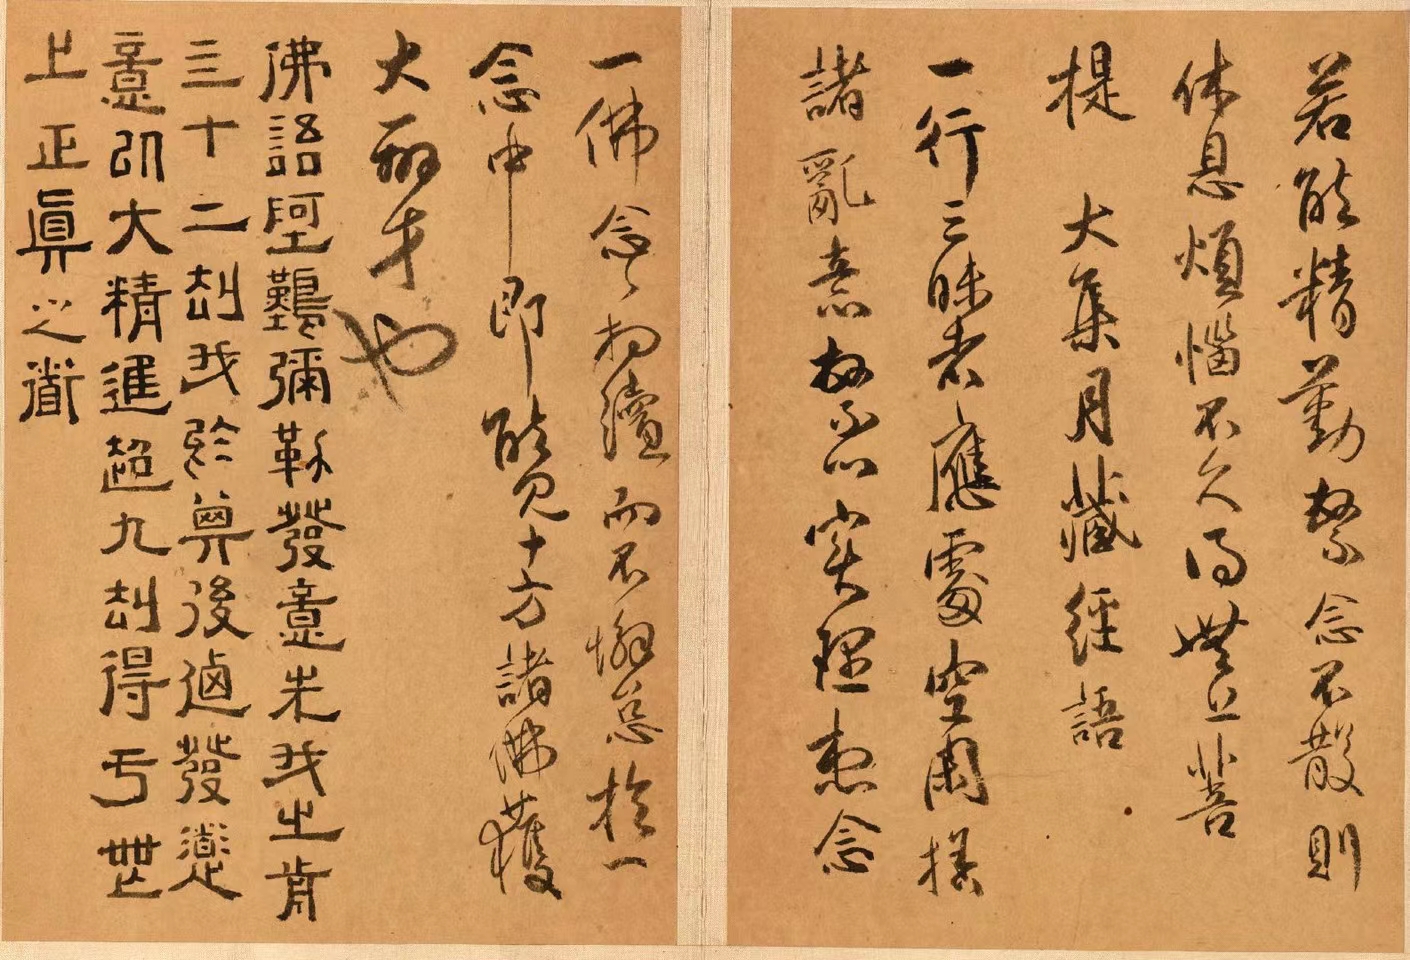 若能精勤繫念不散則
休息煩惱不久得無上菩
提 大集月藏經語
一行三昧者應處空閑捨
諸亂意繫心實理想念
一佛念々相續而不懈怠於一
念中即能見十方諸佛獲
大辯才也
佛語阿難彌勒發意先我之前
三十二劫我於其後迺發道
意以大精進超九劫得于無
上正真之道